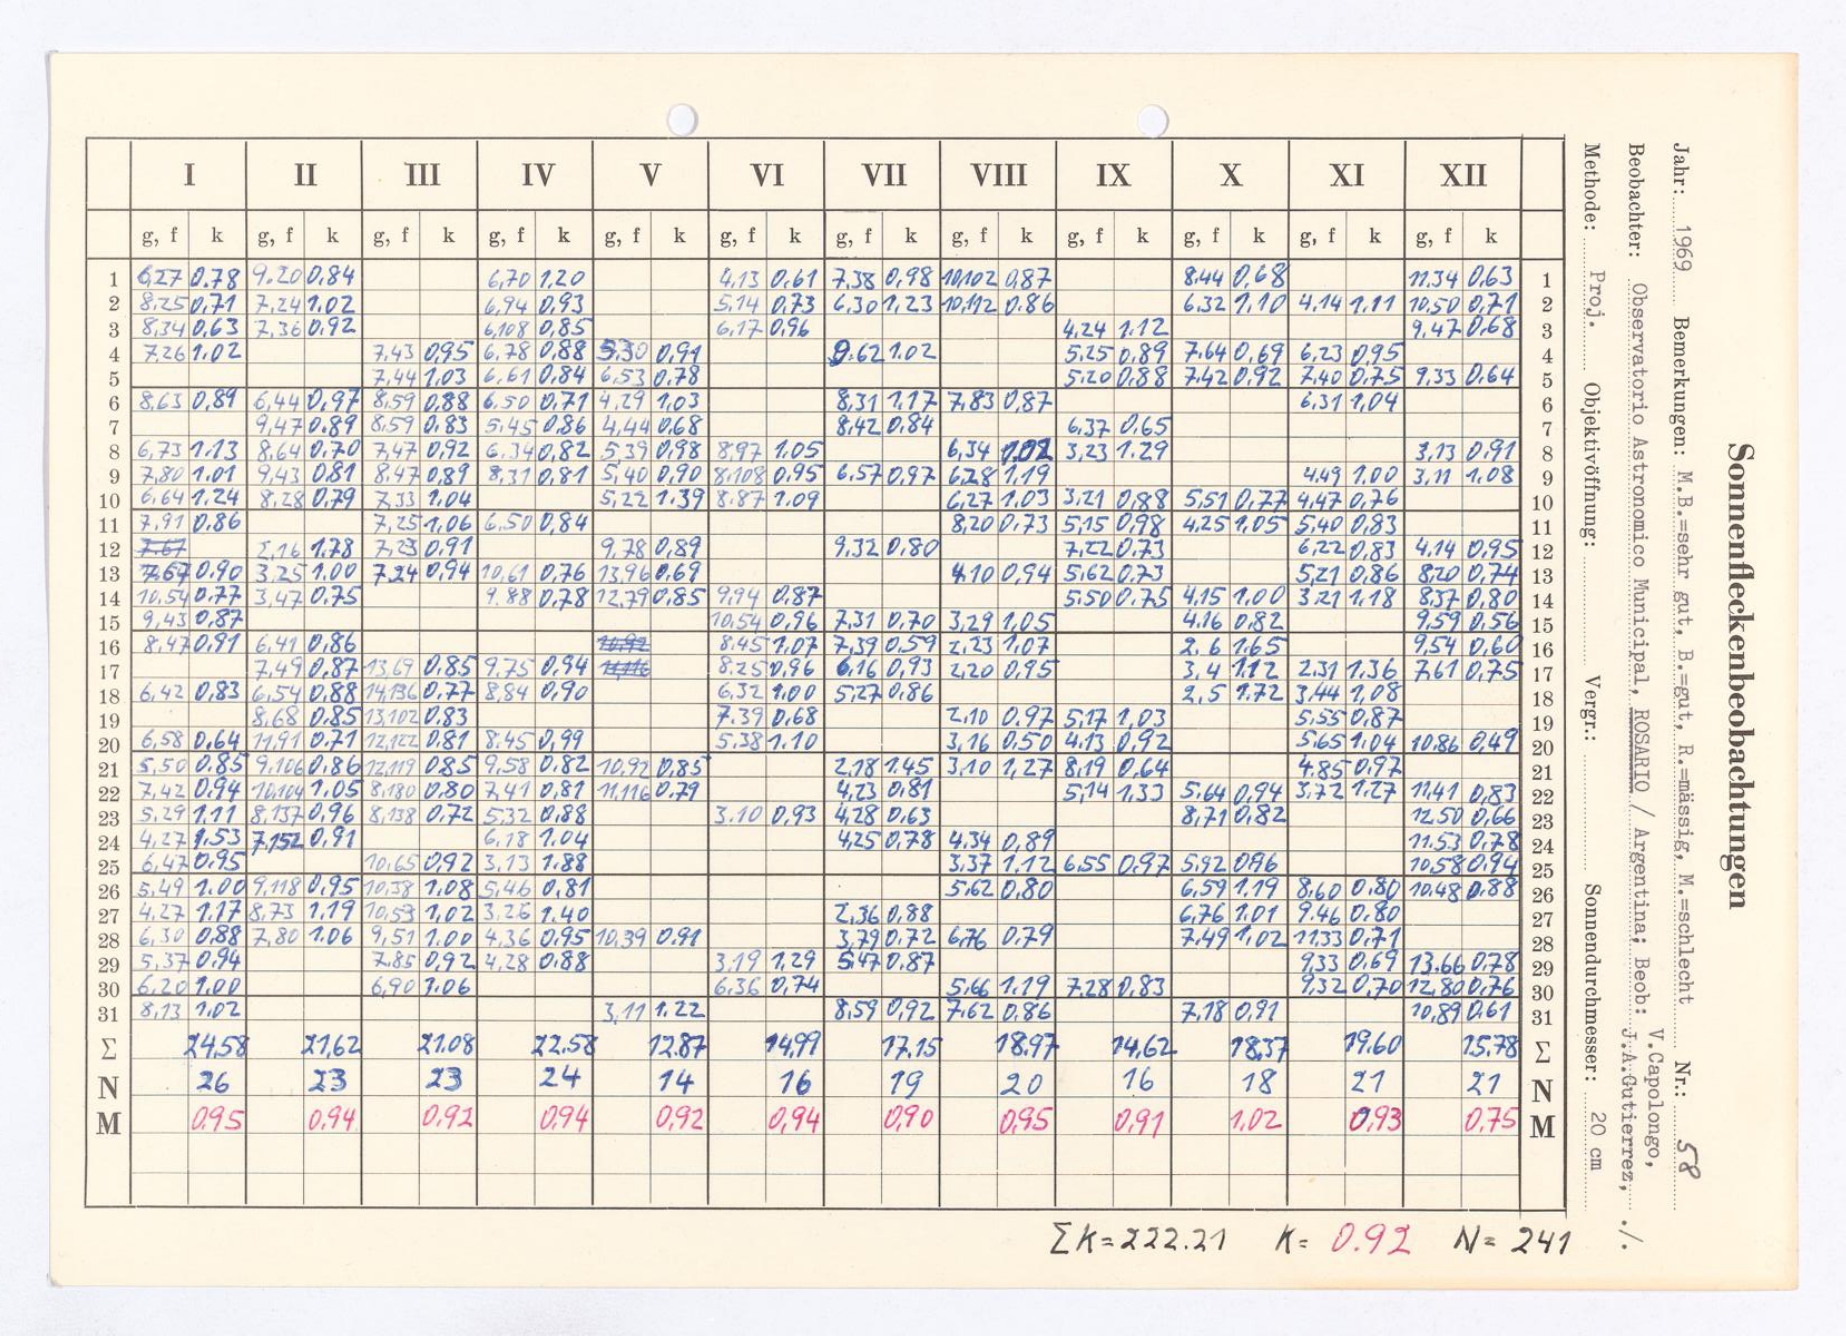 Sonnenfleckenbeobachtungen
Jahr: 1969 Bemerkungen: M.B.=sehr gut, B.=gut, R.=mässig, M.=schlecht Nr.: 58
Beobachter: Observatorio Astronomico Municipal, ROSARIO / Argentina; Beob: V.Capolongo, J.A.Gutierrez, ./.
Methode: Proj. Objektivöffnung: Vergr.: Sonnendurchmesser: 20 cm
I II III IV V VI VII VIII IX X XI XII
g, f k g, f k g, f k g, f k g, f k g, f k g, f k g, f k g, f k g, f k g, f k g, f k
1 6,27 0.78 9.20 0,84 6,70 1,20 4,13 0,61 7,38 0,98 10,102 0,87 8,44 0,68 11.34 0,63 1
2 8,25 0,71 7,24 1.02 6,94 0,93 5,14 0,73 6,30 1,23 10,112 0.86 6,32 1,10 4,14 1,11 10,50 0,71 2
3 8,34 0,63 7,36 0,92 6,108 0,85 6,17 0,96 4,24 1.12 9,47 0,68 3
4 7,26 1,02 7,43 0,95 6,78 0,88 5,30 0,91 9.62 1.02 5,25 0,89 7,64 0,69 6,23 0,95 4
5 7,44 1.03 6,61 0,84 6,53 0,78 5,20 0,88 7,42 0,92 7,40 0,75 9,33 0,64 5
6 8,63 0,89 6,44 0,97 8,59 0,88 6,50 0,71 4,29 1,03 8,31 1,17 7,83 0,87 6,31 1,04 6
7 9,47 0.89 8,59 0,83 5,45 0,86 4,44 0,68 8,42 0,84 6,37 0,65 7
8 6,73 1.13 8,64 0,70 7,47 0,92 6,34 0,82 5,39 0,98 8,97 1.05 6,34 1.02 3,23 1.29 3,13 0,91 8
9 7,80 1.01 9,43 0,81 8.47 0,89 8,31 0,81 5,40 0,90 8,108 0,95 6,57 0,97 6,28 1,19 4,49 1.00 3,11 1,08 9
10 6,64 1.24 8,28 0,79 7,33 1.04 5,22 1.39 8.87 1.09 6,27 1.03 3,21 0,88 5,51 0,77 4,47 0,76 10
11 7,91 0,86 7,25 1,06 6,50 0,84 8,20 0,73 5,15 0,98 4,25 1,05 5,40 0,83 11
12 7.67 2,16 1.78 7,23 0,91 9,78 0,89 9,32 0,80 7,22 0,73 6,22 0,83 4,14 0,95 12
13 7,67 0,90 3,25 1.00 7,24 0,94 10,61 0,76 13,96 0,69 4,10 0,94 5,62 0,73 5,21 0,86 8,20 0,74 13
14 10,54 0,77 3,47 0,75 9.88 0,78 12,79 0,85 9,94 0,87 5,50 0.75 4,15 1.00 3,21 1,18 8,37 0,80 14
15 9,43 0,87 10,54 0,96 7,31 0,70 3,29 1,05 4.16 0,82 9,59 0,56 15
16 8,47 0,91 6,41 0,86 10,92 8.45 1.07 7,39 0,59 2,23 1,07 2.6 1.65 9,54 0,60 16
17 7,49 0,87 13,69 0.85 9,75 0,94 11,116 8.25 0,96 6,16 0,93 2,20 0,95 3,4 1.12 2,31 1,36 7,61 0,75 17
18 6,42 0,83 6,54 0,88 14,136 0,77 8,84 0,90 6,32 1.00 5,27 0,86 2,5 1.72 3,44 1,08 18
19 8,68 0,85 13,102 0.83 7.39 0,68 2,10 0.97 5,17 1,03 5,55 0,87 19
20 6,58 0.64 11,91 0,71 12,122 0,81 8.45 0,99 5.38 1.10 3,16 0,50 4,13 0,92 5,65 1.04 10,86 0,49 20
21 5,50 0.85 9,106 0.86 12,119 0,85 9,58 0,82 10,92 0,85 2,18 1.45 3,10 1,27 8,19 0,64 4,85 0,97 21
22 7,42 0,94 10,104 1.05 8,180 0,80 7,41 0,81 11,116 0,79 4,23 0,81 5,14 1,33 5,64 0,94 3,72 1,27 11,41 0,83 22
23 5,29 1,11 8,137 0,96 8,138 0,72 5,32 0,88 3.10 0,93 4,28 0,63 8,71 0,82 12,50 0,66 23
24 4,27 1,53 7,152 0,91 6,18 1.04 4,25 0,78 4.34 0,89 11.53 0,78 24
25 6,47 0.95 10,65 0,92 3,13 1.88 3,37 1,12 6,55 0,97 5,92 0,96 10,58 0,94 25
26 5,49 1.00 9,118 0,95 10,38 1,08 5,46 0,81 5,62 0,80 6,59 1,19 8,60 0,80 10,48 0.88 26
27 4,27 1,17 8,73 1,19 10,53 1,02 3,26 1.40 2,36 0,88 6,76 1,01 9.46 0,80 27
28 6,30 0,88 7,80 1.06 9,51 1.00 4,36 0,95 10,39 0.91 3,79 0,72 6,76 0,79 7,49 1,02 11,33 0,71 28
29 5,37 0,94 7.85 0,92 4,28 0.88 3,19 1,29 5,47 0,87 9,33 0,69 13.66 0,78 29
30 6.20 1,00 6,90 1.06 6,36 0,74 5,66 1.19 7,28 0,83 9,32 0,70 12,80 0,76 30
31 8,13 1,02 3,11 1.22 8,59 0,92 7,62 0,86 7,18 0,91 10,89 0,61 31
Σ 24,58 21,62 21.08 22.58 12.87 14,99 17,15 18,97 14,62 18,37 19.60 15,78 Σ
N 26 23 23 24 14 16 19 20 16 18 21 21 N
M 0,95 0,94 0,92 0,94 0,92 0,94 0,90 0,95 0,91 1,02 0,93 0,75 M
ΣK=222.21 K= 0.92 N= 241